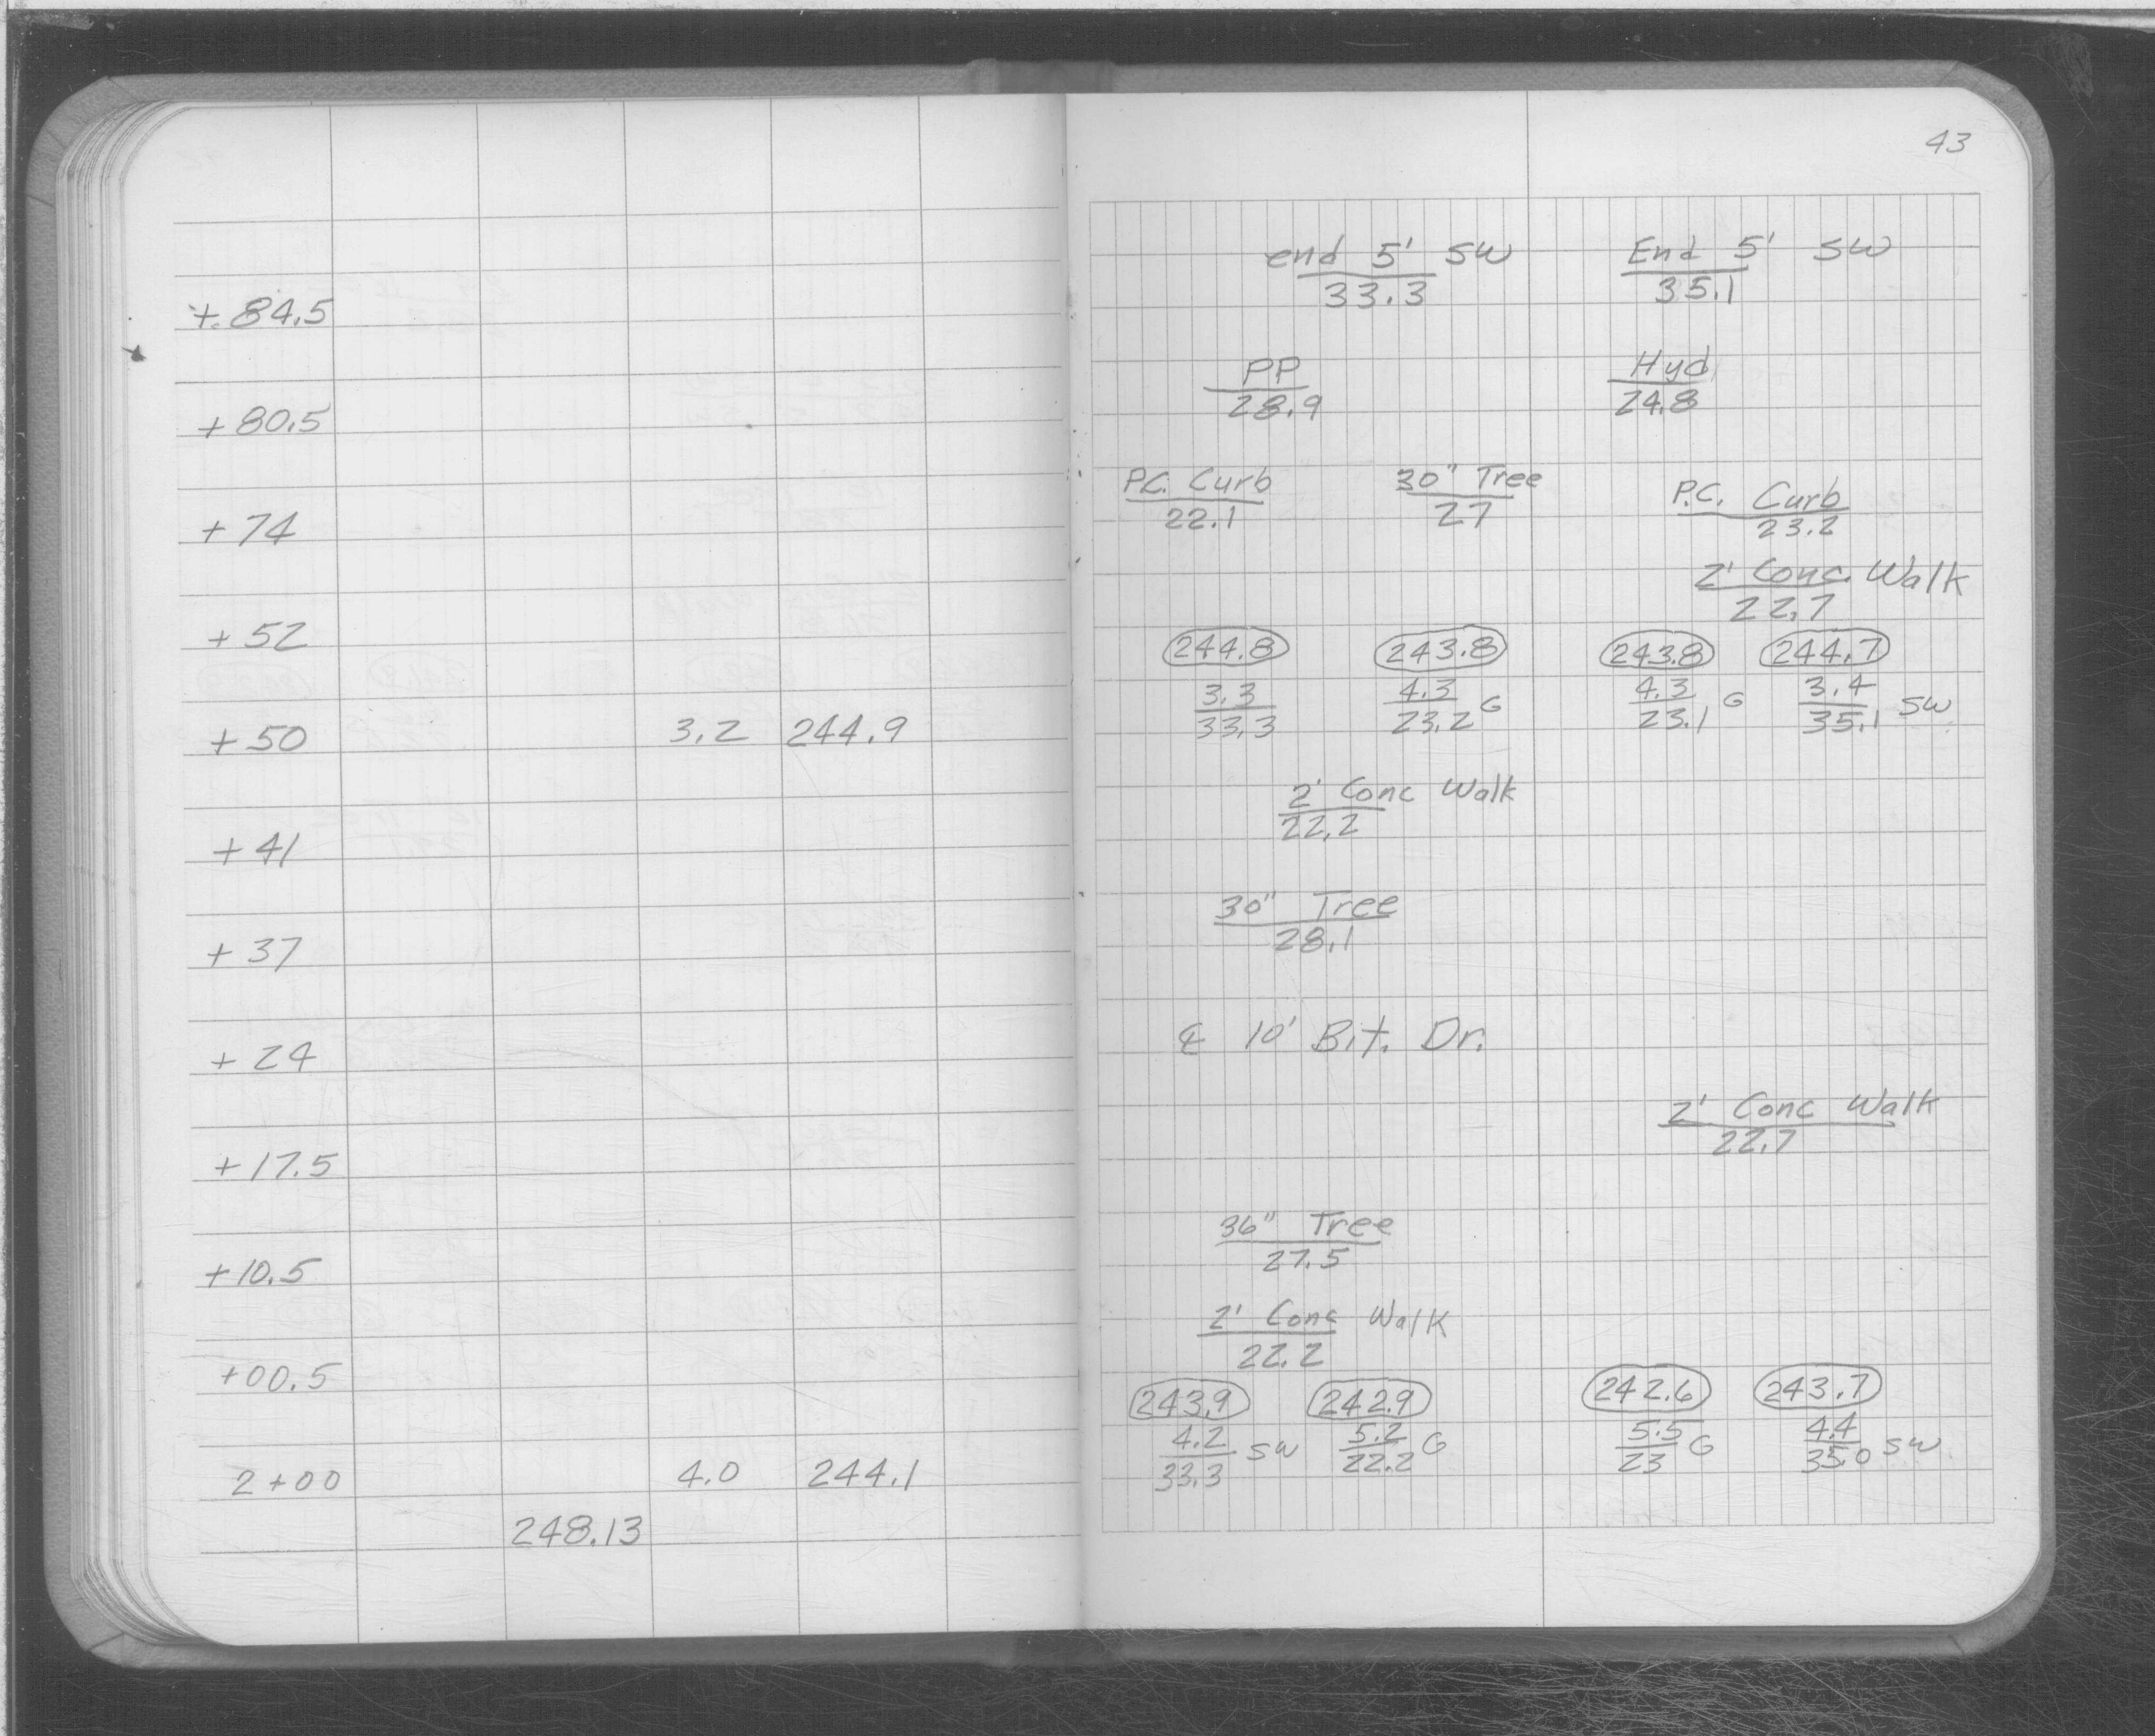 43
end 5' SW End 5' SW
+84.5 33.3 35.1
PP Hyd.
+80.5 28.9 24.8
P.C. Curb 30" Tree P.C. Curb
+74 22.1 27 23.2
2' Conc. Walk
+52 22.7
244.8 243.8 243.8 244.7
3.3 4.3 G 4.3 G 3.4 SW
+50 3.2 244.9 33.3 23.2 23.1 35.1
2' Conc Walk
+41 22.2
30" Tree
+37 28.1
+24 ℄ 10' Bit. Dr.
2' Conc Walk
+17.5 22.7
36" Tree
+10.5 27.5
2' Conc Walk
+00.5 22.2
243.9 242.9 242.6 243.7
4.2 SW 5.2 G 5.5 G 4.4 SW
2+00 4.0 244.1 33.3 22.2 23 35.0
248.13